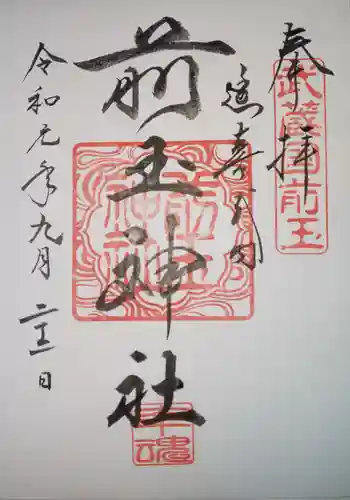 奉拝
武蔵國前玉
延喜式内
前玉神社
前玉
神社
幸魂
令和元年九月二十一日